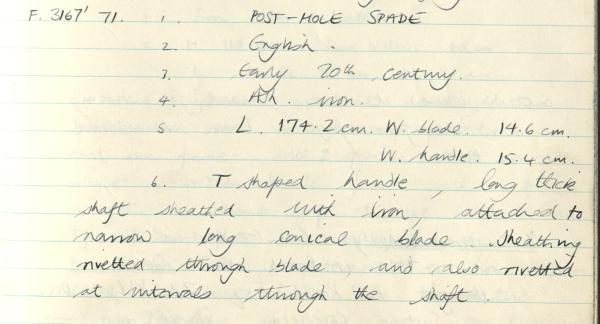 F. 3167' 71. 1. POST-HOLE SPADE
2. English.
3. Early 20th century.
4. Ash. iron.
5. L. 174.2 cm. W. blade. 14.6 cm.
W. handle. 15.4 cm.
6. T shaped handle, long thick
shaft sheathed with iron, attached to
narrow long conical blade. Sheathing
rivetted through blade and also rivetted
at intervals through the shaft.